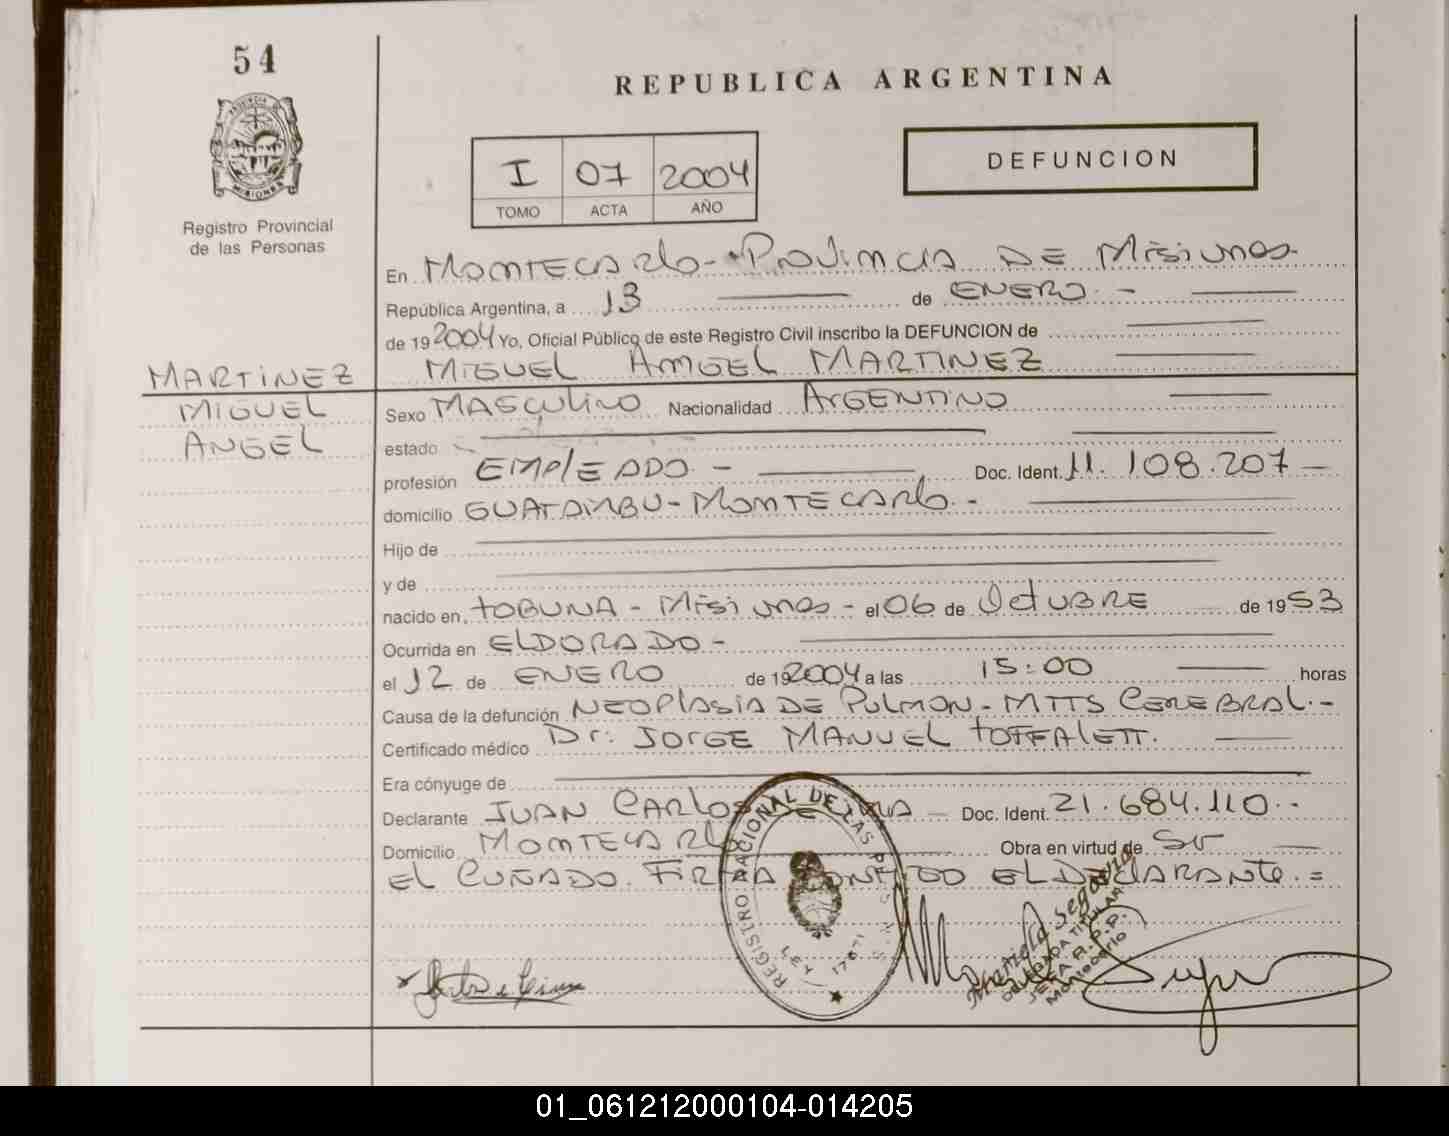 54
REPUBLICA ARGENTINA
I 07 2004
TOMO ACTA AÑO
DEFUNCION
Registro Provincial
de las Personas
En MONTECARLO - PROVINCIA DE MISIONES
República Argentina, a 13 de ENERO -
de 19 2004 Yo, Oficial Público de este Registro Civil inscribo la DEFUNCION de
MIGUEL ANGEL MARTINEZ
MARTINEZ
MIGUEL
ANGEL
Sexo MASCULINO Nacionalidad ARGENTINO
estado
profesión EMPLEADO - Doc. Ident. 11.108.207 -
domicilio GUATAMBU - MONTECARLO -
Hijo de
y de
nacido en, TOBUNA - MISIONES - el 06 de OCTUBRE de 19 53
Ocurrida en ELDORADO -
el 12 de ENERO de 19 2004 a las 15:00 horas
Causa de la defunción NEOPLASIA DE PULMON - MTTS CEREBRAL. -
Certificado médico Dr. JORGE MANUEL TOFFALETT.
Era cónyuge de
Declarante JUAN CARLOS Doc. Ident. 21.684.110 --
Domicilio MONTECARLO Obra en virtud de SER
EL CUÑADO. FIRMA CONMIGO EL DECLARANTE. =
REGISTRO NACIONAL DE LAS PERSONAS
LEY 17671
Segovia
DELEGADA TITULAR
JEFA R.P.P.
Montecarlo
01_061212000104-014205